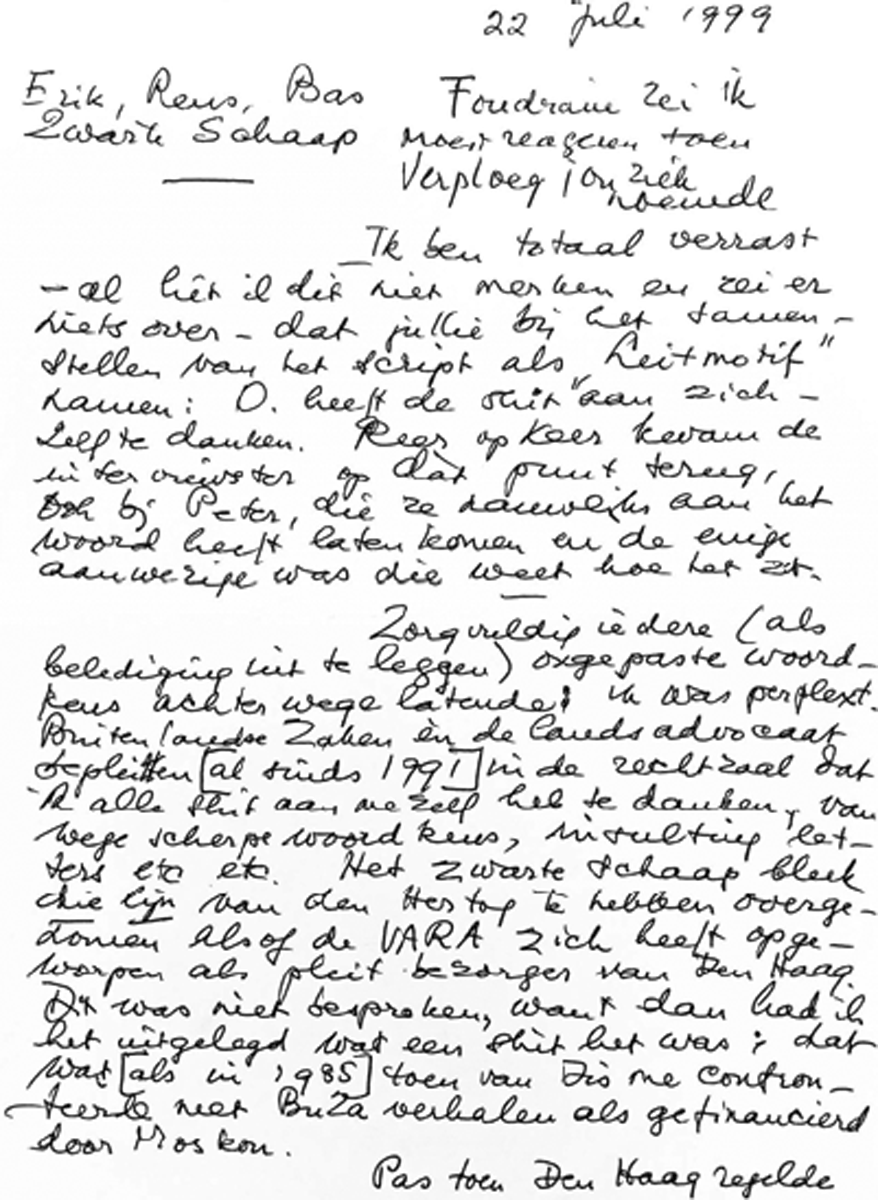 22 Juli 1999
Erik, Rens, Bas
Zwarte Schaap
Foudraine zei ik
moest reageren toen
Verploeg jou ziek
noemde
Ik ben totaal verrast
- al liet ik dit niet merken en zei er
niets over - dat jullie bij het samen-
stellen van het script als "Leitmotif"
namen: O. heeft de shit aan zich-
zelf te danken. Keer op keer kwam de
interviewster op dàt punt terug,
ook bij Peter, die ze nauwelijks aan het
woord heeft laten komen en de enige
aanwezige was die weet hoe het zit.
Zorgvuldig iedere (als
belediging uit te leggen) ongepaste woord-
keus achterwege latende: ik was perplext.
Buitenlandse Zaken èn de landsadvocaat
bepleitten [al sinds 1991] in de rechtzaal dat
ik alle shit aan mezelf heb te danken, van
wege scherpe woordkeus, insulting let-
ters etc etc. Het zwarte schaap bleek
die lijn van den Hertog te hebben overge-
nomen alsof de VARA zich heeft opge-
worpen als pleitbezorger van Den Haag.
Dit was niet besproken, want dan had ik
het uitgelegd wat een shit het was; dat
was [als in 1985] toen van Dis me confron-
teerde met BuZa verhalen als gefinancierd
door Moskou.
Pas toen Den Haag regelde